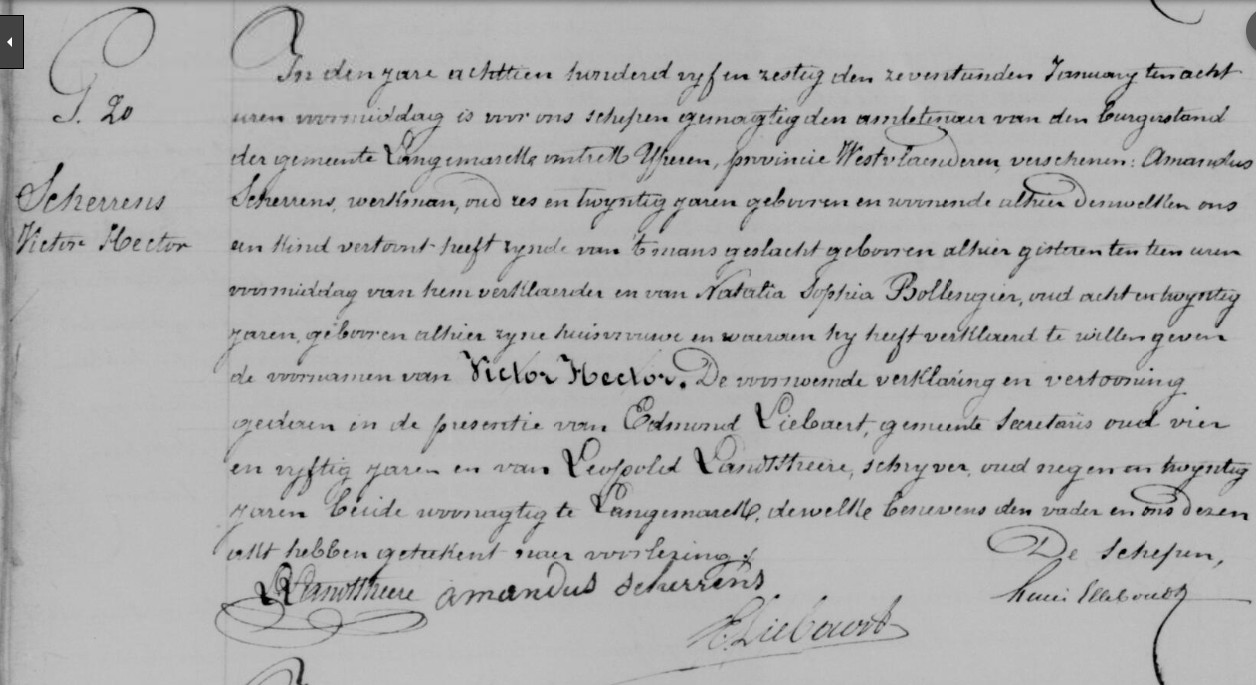 G. 20
Scherrens
Victor Hector
In den jare achttien honderd vyf en zestig den zeventienden January ten acht
uren voormiddag is voor ons schepen gemagtigden ambtenaer van den burgerstand
der gemeente Langemarck omtrek Yperen, provincie Westvlaenderen, verschenen: Amandus
Scherrens, werkman, oud zes en twyntig jaren geboren en woonende alhier denwelken ons
een kind vertoont heeft zynde van 't mans geslacht geboren alhier gisteren ten tien uren
voormiddag van hem verklaerder en van Natalia Sophia Bollengier, oud acht en twyntig
jaren, geboren alhier zyne huisvrouwe en waeraen hy heeft verklaerd te willen geven
de voornamen van Victor Hector. De voornoemde verklaring en vertooning
gedaen in de presentie van Edmond Liebaert, gemeente secretaris oud vier
en vyftig jaren en van Leopold Landtsheere, schryver, oud negen en twyntig
jaren beide woonagtig te Langemarck, dewelke benevens den vader en ons dezen
akt hebben geteekent naer voorlezing.
De schepen,
LLandtsheere amandus scherrens
E. Liebaert